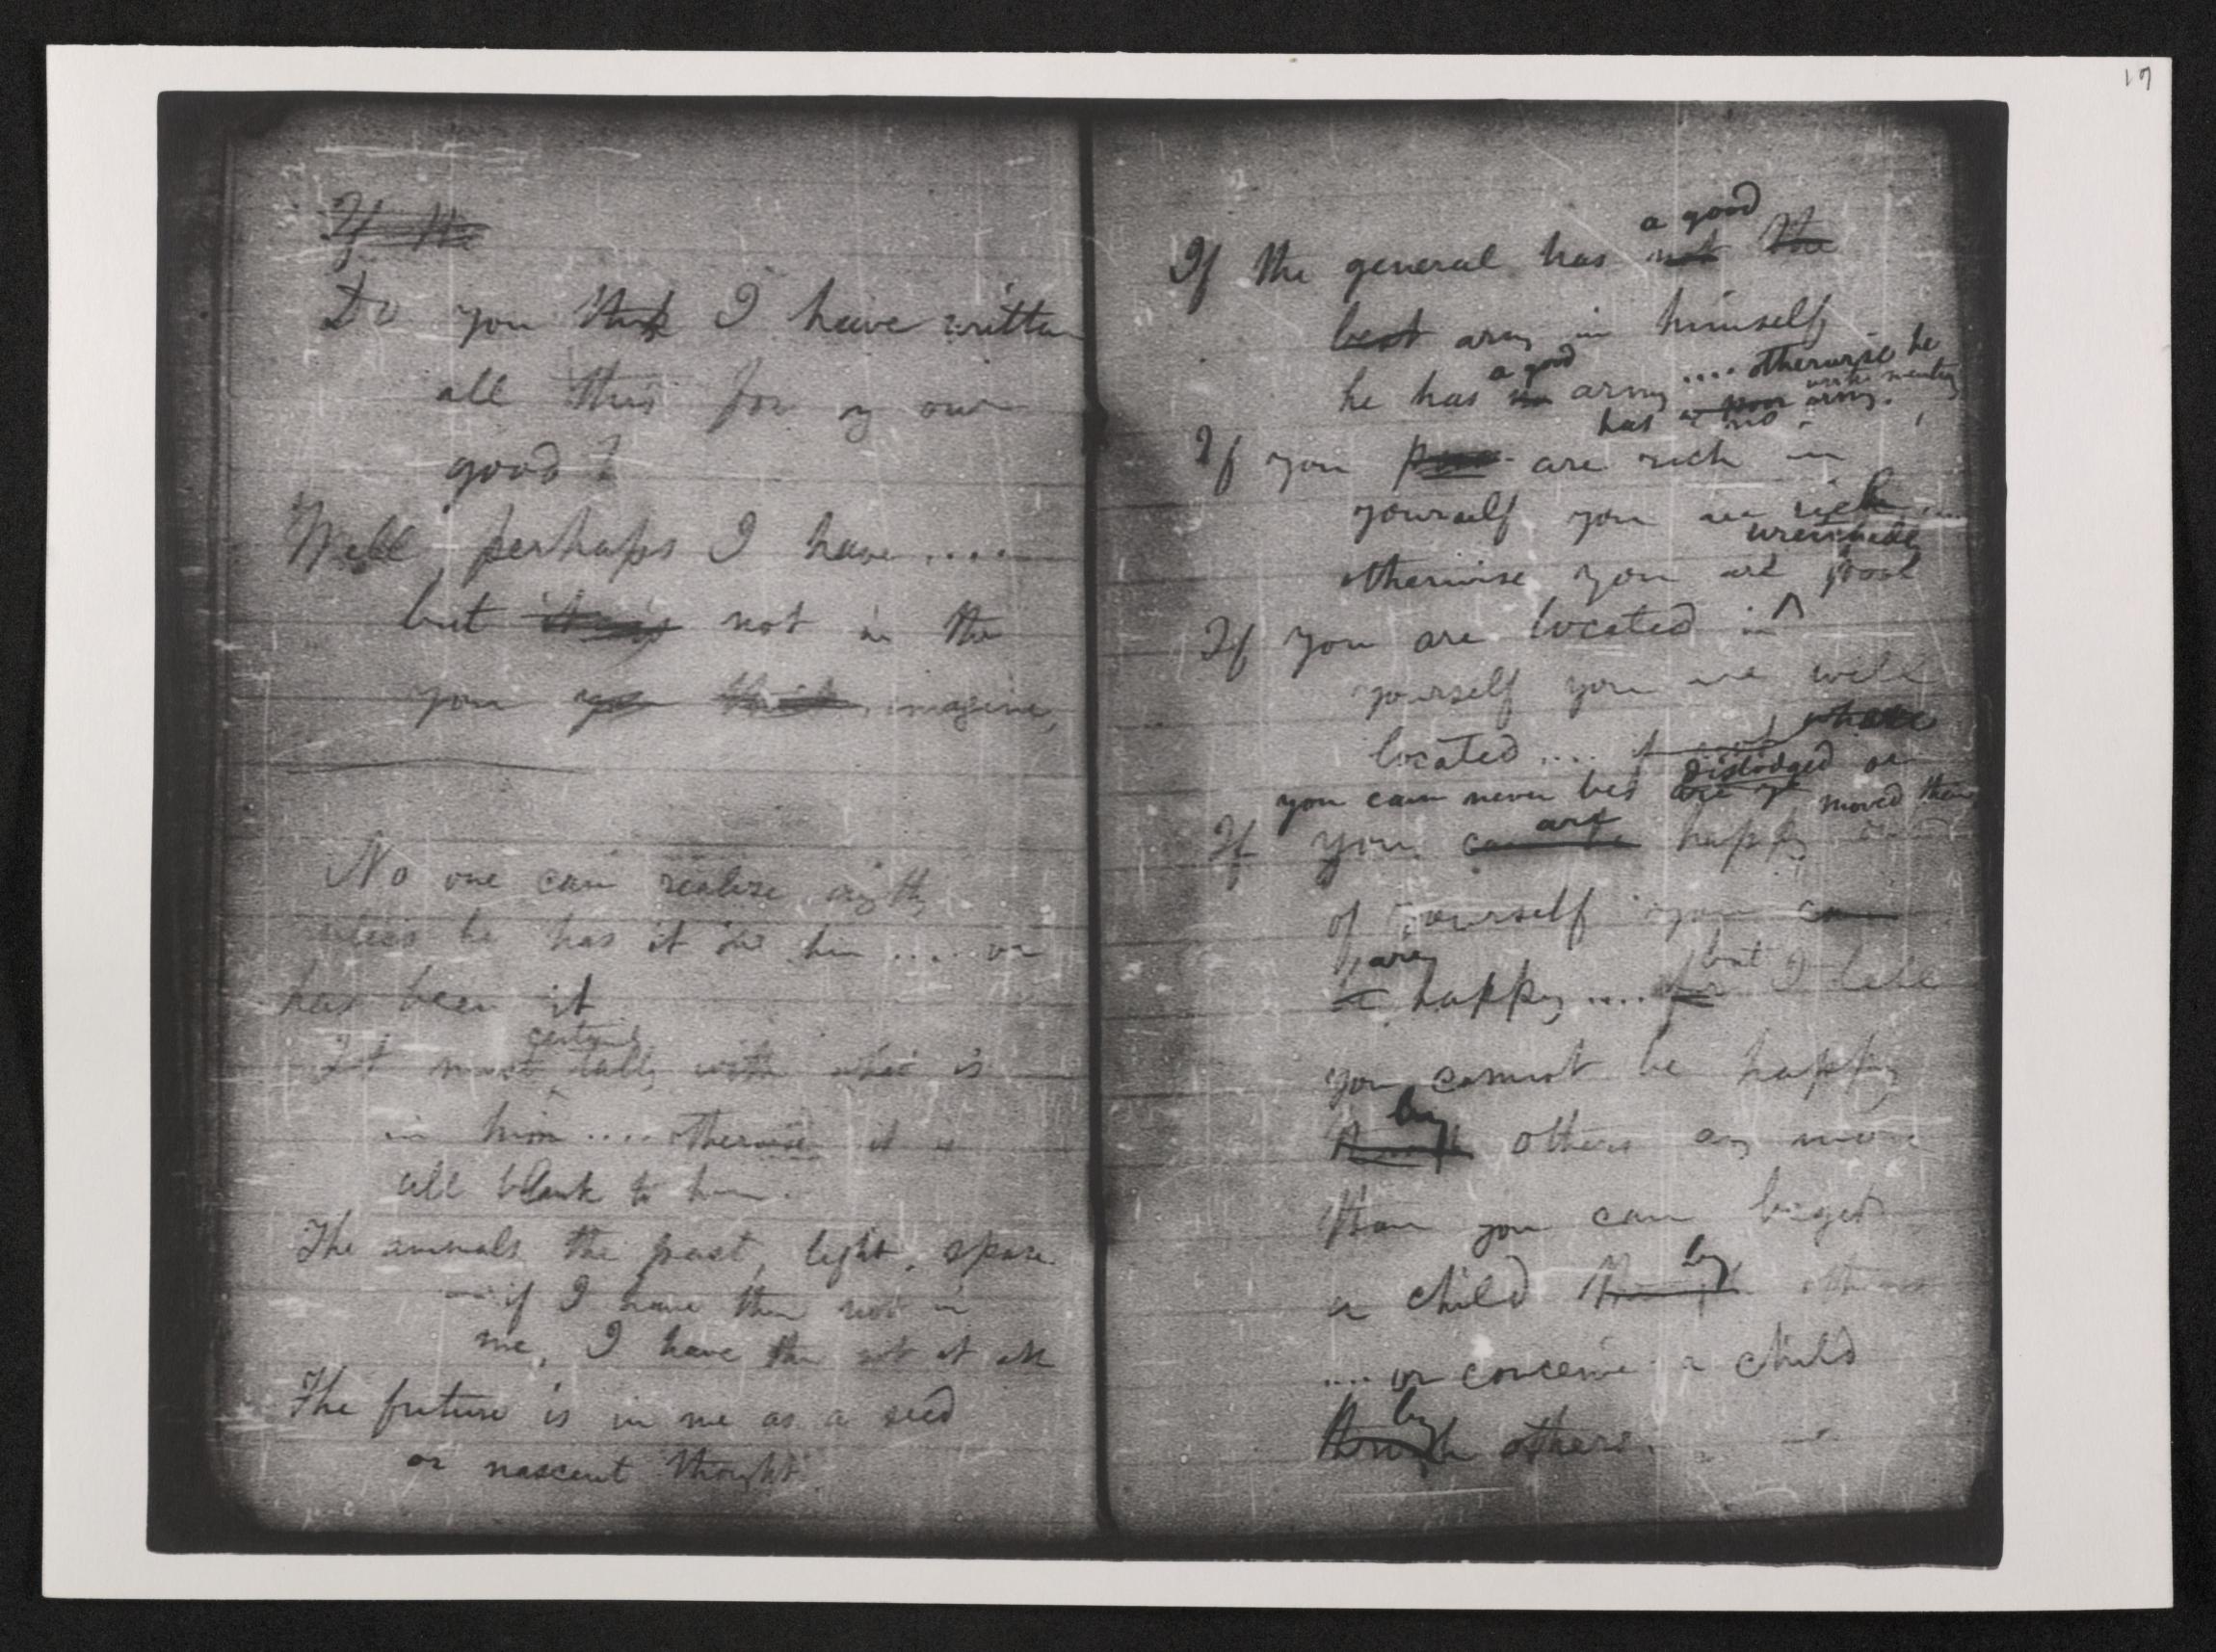 17
If the
Do you think I have written
all this for my own
good?
Well perhaps I have ....
but it is not in the
you you think imagine,
No one can realize anything
unless he has it in him ..... or
has been it
certainly
It must tally with what is
in him .... otherwise it is
all blank to him.
The animals, the past, light, space
— if I have them not in
me, I have them not at all
The future is in me as a seed
or nascent thought.
a good
If the general has not the
best army in himself,
a good .... otherwise he
he has no army
has a poor army. worth mentioning
no
If you poor are rich in
yourself, you are rich ....
wretchedly
otherwise you are poor
If you are located in
yourself you are well
located ....
dislodged or
you can never be are moved thence
are
If you can be happy out
of yourself you can
are
be happy .... for but I tell
you cannot be happy
by
through others any more
than you can beget
by
a child through others
.... or conceive a child
by
through others.